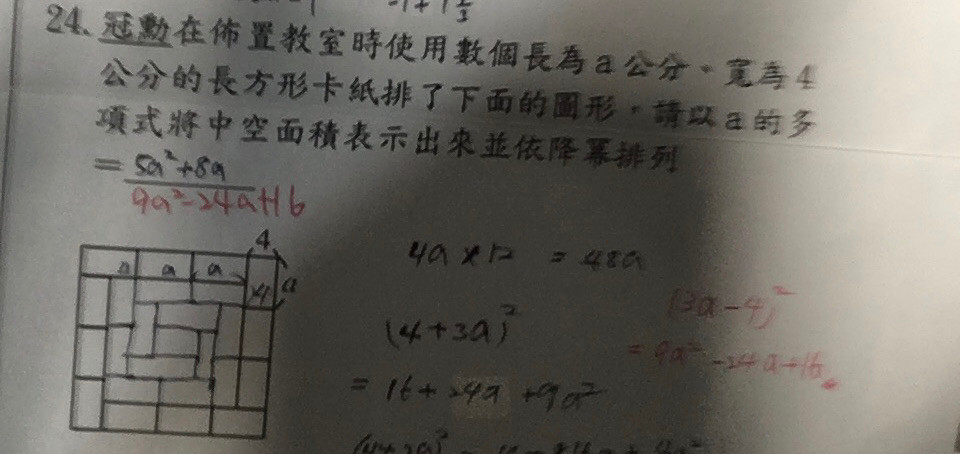 24. 冠勳在佈置教室時使用數個長為a公分、寬為4
公分的長方形卡紙排了下面的圖形,請以a的多
項式將中空面積表示出來並依降冪排列
= 5a²+8a
9a²-24a+16
4
a a a
x4
4a × 12 = 48a
(4+3a)²
= 16+24a+9a²
(3a-4)²
= 9a²-24a+16